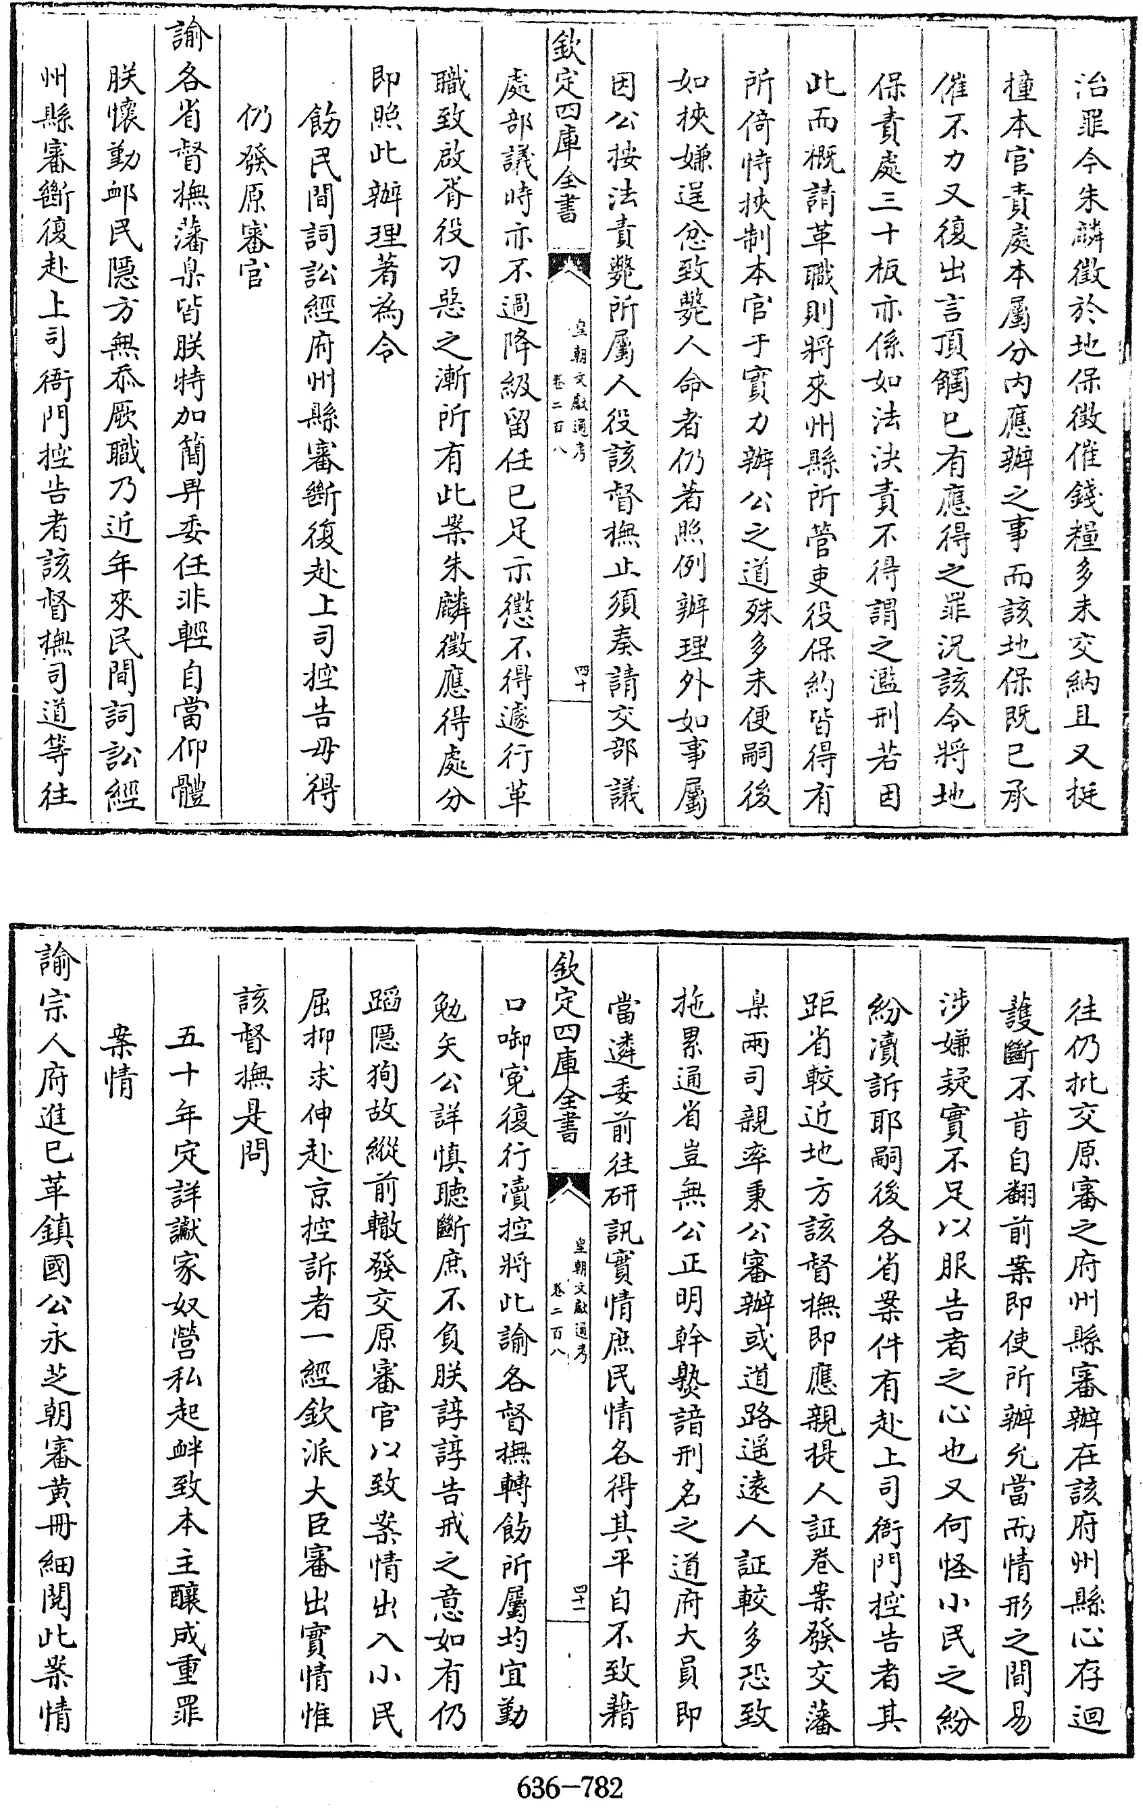 治罪今朱麟徵於地保徵催錢糧多未交納且又挺
撞本官責處本屬分内應辦之事而該地保既已承
催不力又復出言頂觸已有應得之罪況該令將地
保責處三十板亦係如法決責不得謂之濫刑若因
此而概請革職則將來州縣所管吏役保約皆得有
所倚恃挾制本官于實力辦公之道殊多未便嗣後
如挾嫌逞忿致斃人命者仍著照例辦理外如事屬
因公按法責斃所屬人役該督撫止須奏請交部議
欽定四庫全書
皇朝文獻通考
卷二百八
四十
處部議時亦不過降級留任已足示懲不得遽行革
職致啟胥役刁惡之漸所有此案朱麟徵應得處分
即照此辦理著為令
飭民間詞訟經府州縣審斷復赴上司控告毋得
仍發原審官
諭各省督撫藩臬皆朕特加簡畀委任非輕自當仰體
朕懷勤䘏民隱方無忝厥職乃近年來民間詞訟經
州縣審斷復赴上司衙門控告者該督撫司道等往
往仍批交原審之府州縣審辦在該府州縣心存迴
護斷不肯自翻前案即使所辦允當而情形之間易
涉嫌疑實不足以服告者之心也又何怪小民之紛
紛瀆訴耶嗣後各省案件有赴上司衙門控告者其
距省較近地方該督撫即應親提人証卷案發交藩
臬兩司親率秉公審辦或道路遥遠人証較多恐致
拖累通省豈無公正明幹熟諳刑名之道府大員即
當遴委前往研訊實情庶民情各得其平自不致藉
欽定四庫全書
皇朝文獻通考
卷二百八
四十一
口啣寃復行瀆控將此諭各督撫轉飭所屬均宜勤
勉矢公詳慎聽斷庶不負朕諄諄告戒之意如有仍
蹈隱狥故縱前轍發交原審官以致案情出入小民
屈抑求伸赴京控訴者一經欽派大臣審出實情惟
該督撫是問
五十年定詳讞家奴營私起衅致本主釀成重罪
案情
諭宗人府進已革鎮國公永芝朝審黄冊細閲此案情
636-782